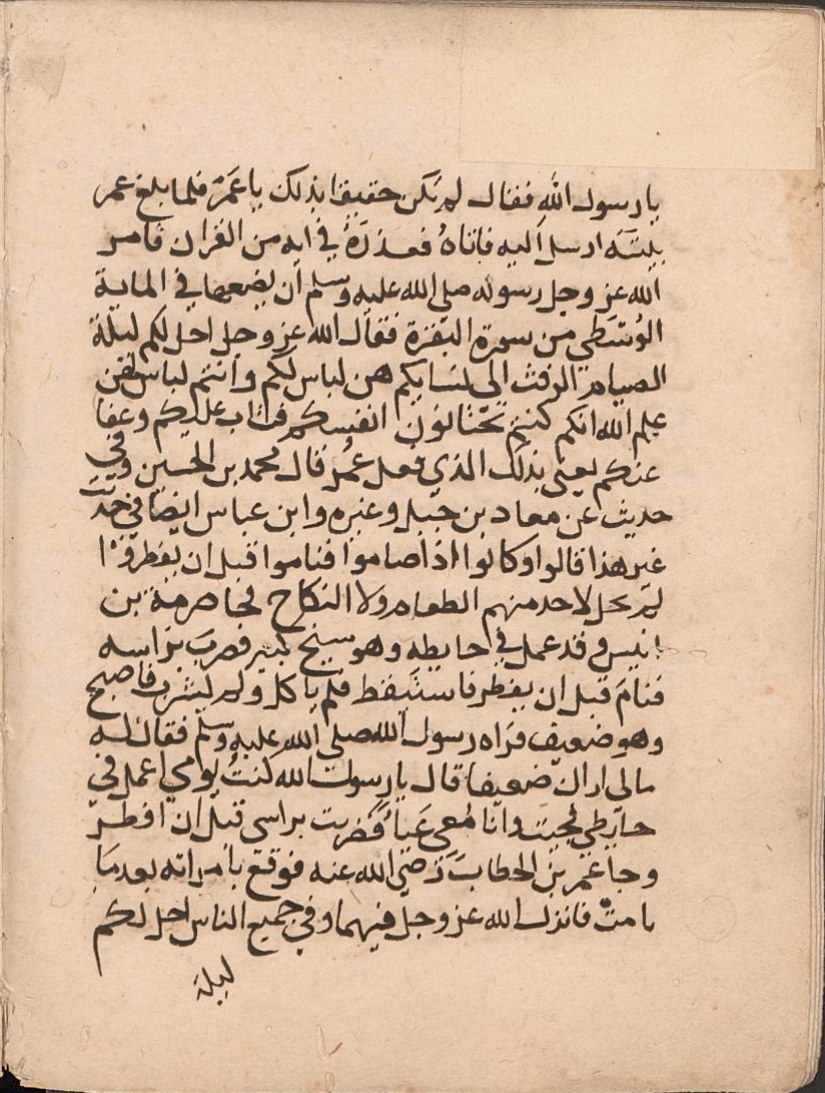 يا رسول الله فقال لم تكن حقيقا بذلك يا عمر فلما بلغ عمر
بيته ارسل اليه فاتاه فعذره في ايه من القران فامر
الله عز وجل رسوله صلى الله عليه وسلم ان يضعها في الماية
الوسطي من سورة البقرة فقال الله عز وجل احل لكم ليلة
الصيام الرفث الى نسايكم هن لباس لكم وانتم لباس لهن
علم الله انكم كنتم تختانون انفسكم فتاب عليكم وعفا
عنكم يعني بذلك الذي فعل عمر قال محمد بن الحسين وفي
حديث عن معاد بن جبل وغيره وابن عباس ايضا في حديث
غير هذا قالوا وكانوا اذا صاموا فناموا قبل ان يفطروا
لم يحل لاحد منهم الطعام ولا النكاح فجا صرمة بن
انيس وقد عمل في حايطه وهو شيخ كبير فضرب براسه
فنام قبل ان يفطر فاستيقظ فلم ياكل ولم يشرب فاصبح
وهو ضعيف فراه رسول الله صلى الله عليه وسلم فقال له
مالي اراك ضعيفا قال يا رسول الله كنت يومي اعمل في
حايطي فجيت وانا معي فضربت براسي قبل ان افطر
وجا عمر بن الخطاب رضي الله عنه فوقع بامراته بعد ما
نامت فانزل الله عز وجل فيهما وفي جميع الناس احل لكم
ليلة